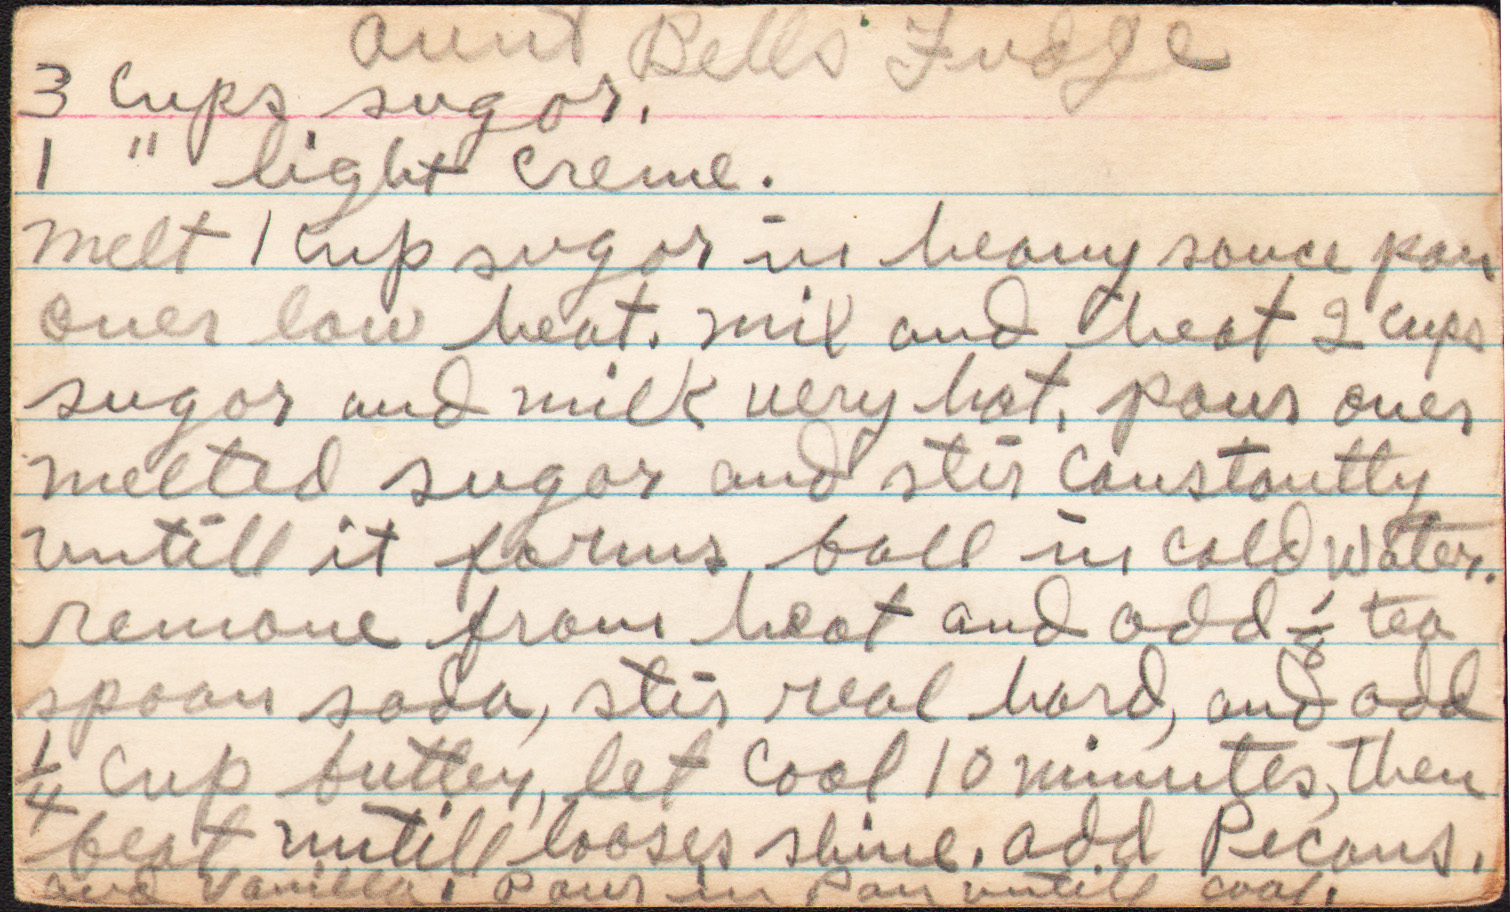 Aunt Bells Fudge
3 Cups sugar.
1 " light creme.
Melt 1 cup sugar in heavy sauce pan
over low heat. Mix and heat 2 cups
sugar and milk very hot, pour over
melted sugar and stir constantly
untill it forms ball in cold water.
remove from heat and add 1/8 tea
spoon soda, stir real hard, and add
1/4 cup butter, let cool 10 minutes, then
beat untill looses shine. add Pecans.
and Vanilla. Pour in pan untill cool.